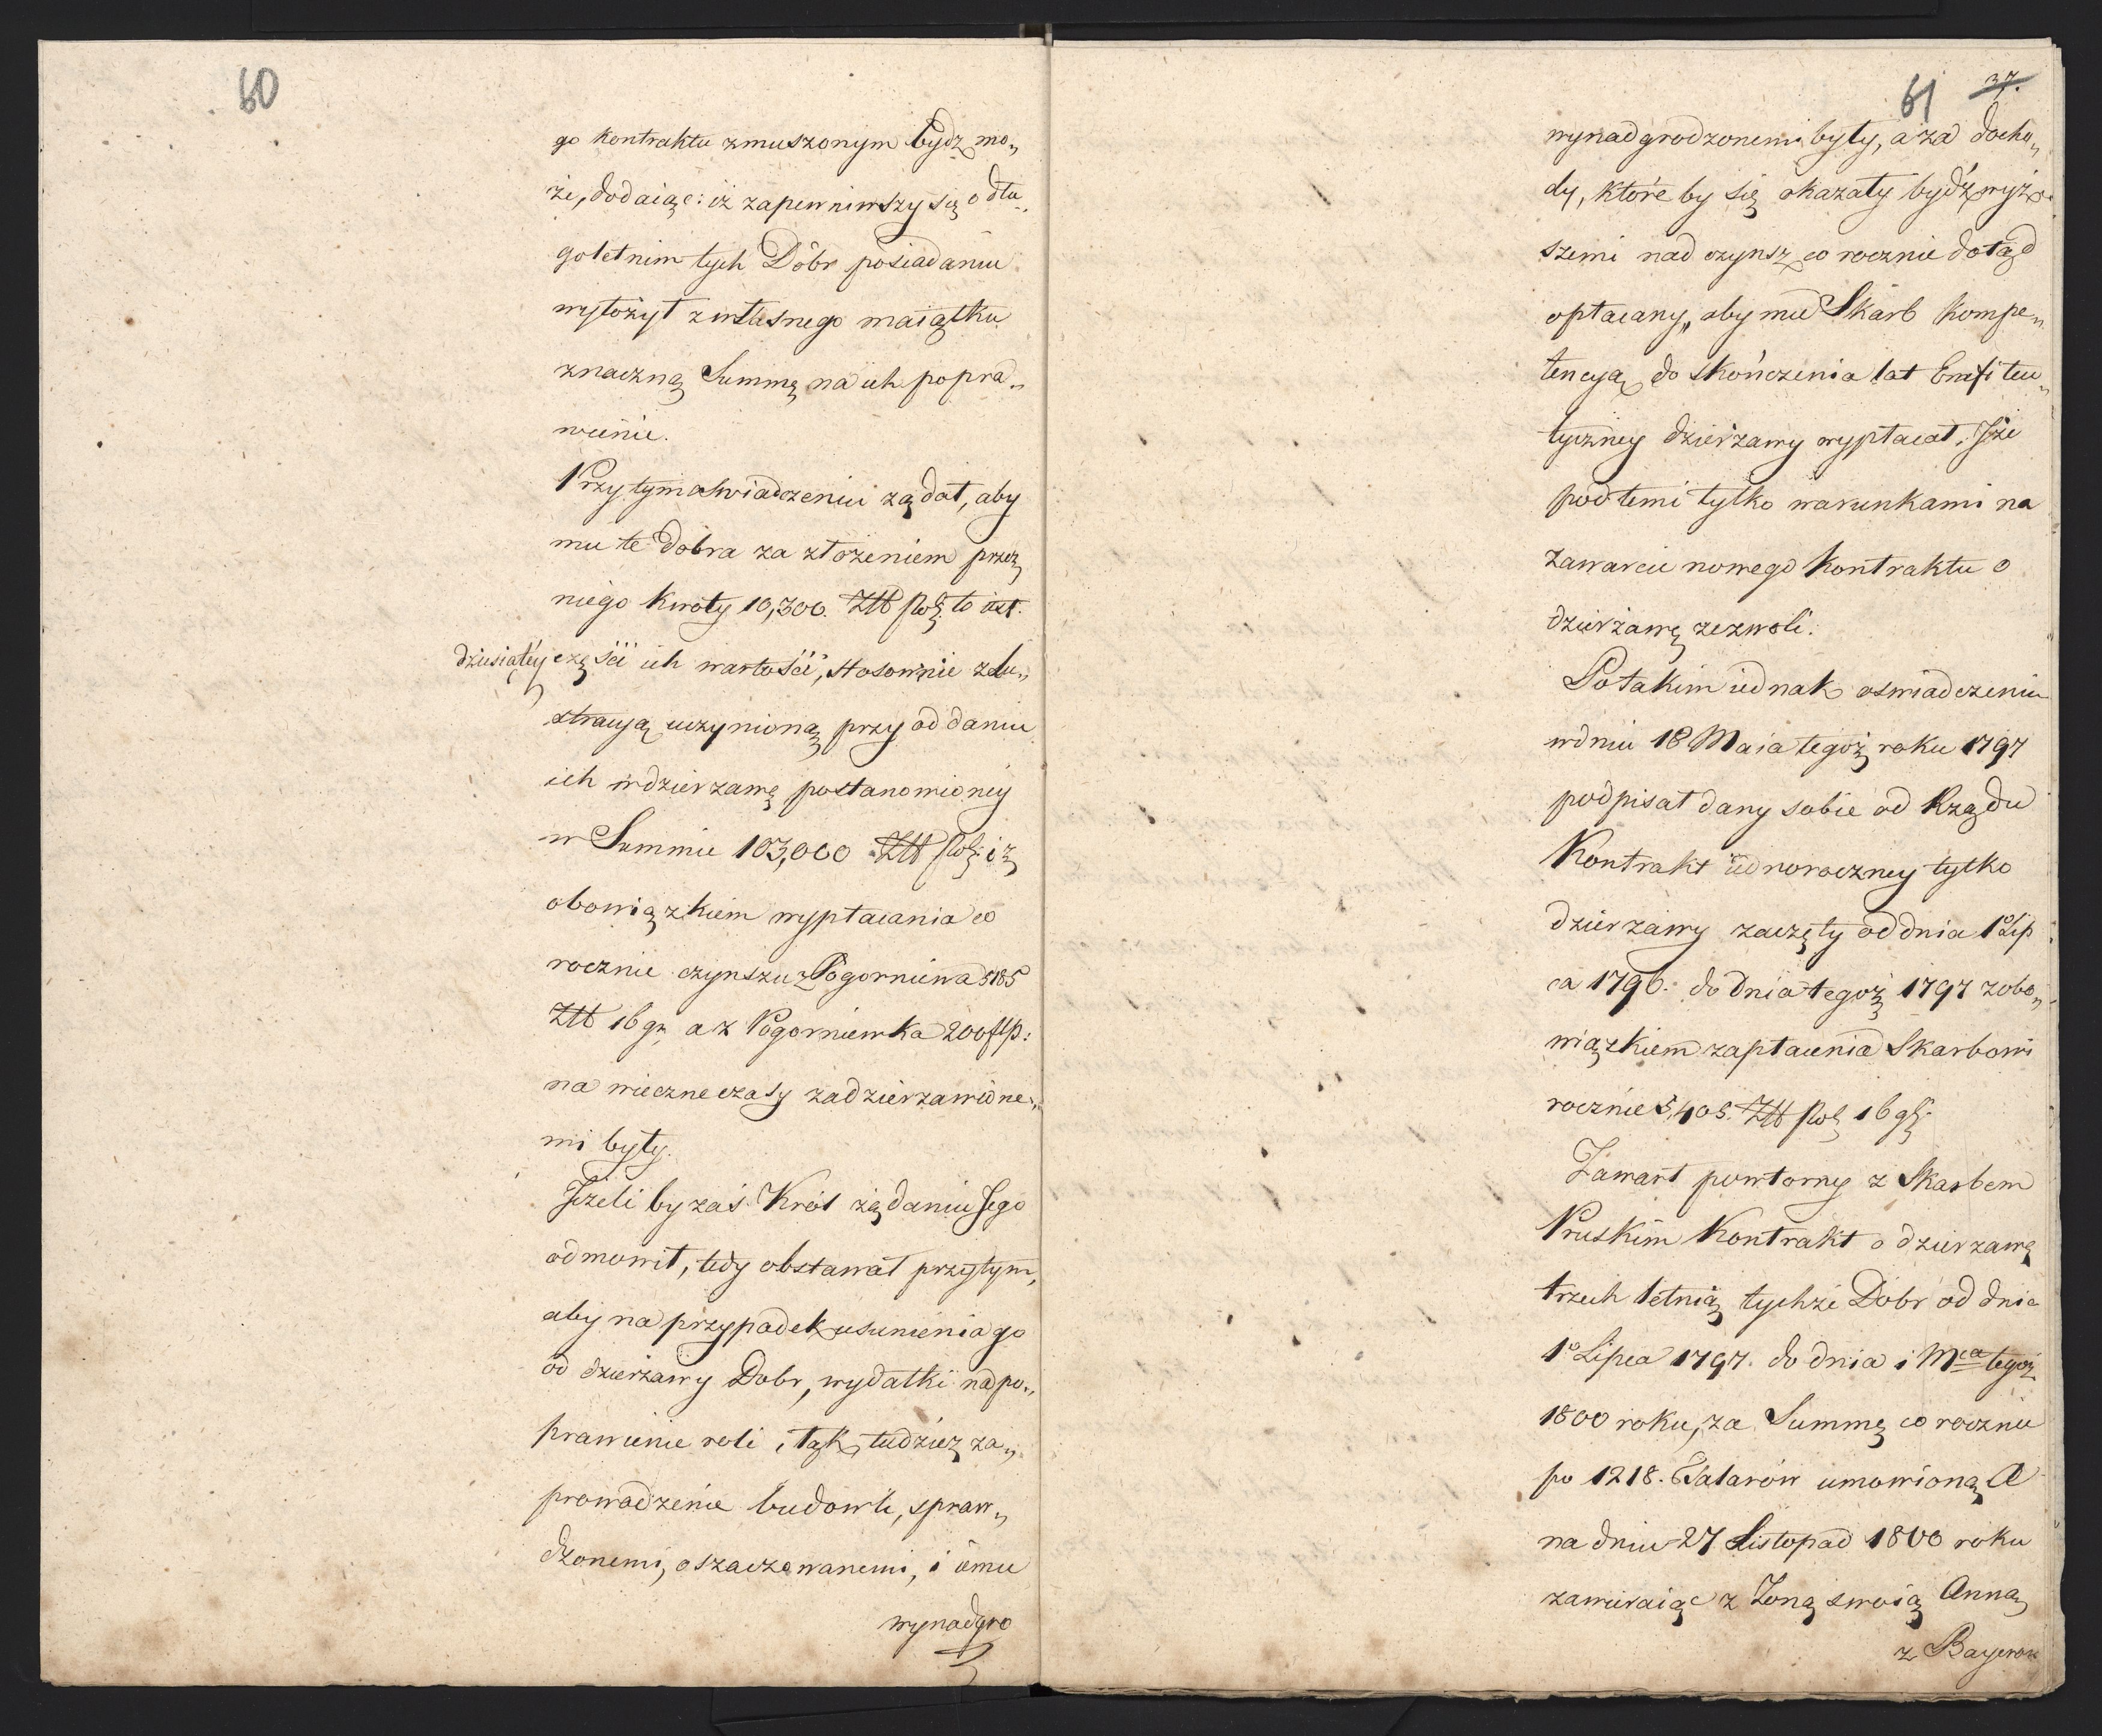 60
go Kontraktu zmuszonym bydz mo„
że, dodaiąc: iż zapewniwszy się o dłu„
goletnim tych Dóbr posiadaniu
wyłożył z własnego maiątku
znaczną Summę na ich popra„
wienie.
Przy tym oświadczeniu żądał, aby
mu te Dobra za złożeniem przez
niego kwoty 10,300. Złł Pol: to iest.
dziesiątéy części ich wartości, stosownie z Lu„
stracyą uczynioną przy oddaniu
ich w dzierzawę postanowioney
w Summie 103,000 Złł Pol: i z
obowiązkiem wypłacania co
rocznie czynszu z Pogorniewa 5185
Złł 16 gr, a z Pogorniewka 200 flp:
na wieczne czasy zadzierzawione„
mi były.
Jeżeli by zaś Król żądaniu Jego
odmowił, tedy obstawał przytym,
aby na przypadek usunienia go
od dzierżawy Dobr, wydatki na po„
prawienie roli i łąk, tudzież za„
prowadzenie budowli, spraw„
dzonemi, oszaczowanemi, i iemu
wynadgro
61 37.
wynadgrodzonemi były, a za docho„
dy, które by się okazały bydź wyż„
szemi nad czynsz co rocznie dotąd
opłacany„ aby mu Skarb kompe„
tencyą do skończenia lat Emfiteu„
tyczney dzierżawy wypłacał, Iże
pod temi tylko warunkami na
zawarcie nowego Kontraktu o
dzierżawę zezwoli.
Po takim iednak oswiadczeniu
w dniu 18 Maia tegoż roku 1797
podpisał dany sobie od Rządu
Kontrakt iednoroczney tylko
dzierzawy zaczęty od dnia 1º Lip
ca 1796. do dnia tegoż 1797 z obo„
wiązkiem zapłacenia Skarbowi
rocznie 5,405. Złł Pol 16 gr:
Zawarł powtorny z Skarbem
Pruskim Kontrakt o dzierzawę
trzech letnią tychże Dobr od dnia
1º Lipca 1797. do dnia i Mca tegoż
1800 roku, za Summę co rocznie
po 1218. Talarów umowioną A
na dniu 27 Listopad 1800 roku
zawieraiąc z Żoną swoią Anną
z Bayerow